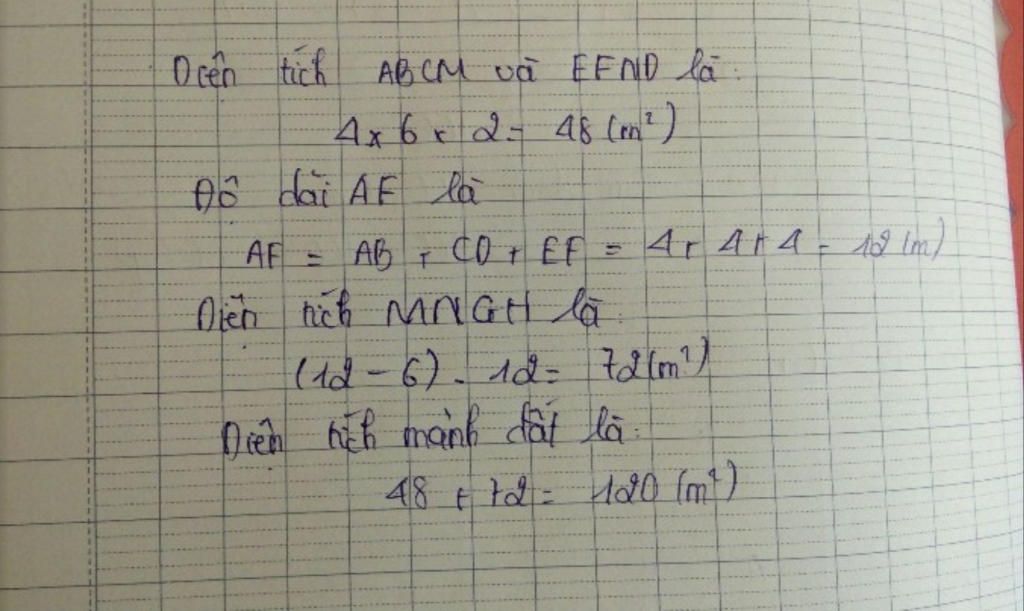 Diện tích ABCM và EFND là:
4 x 6 x 2 = 48 (m²)
Độ dài AF là
AF = AB + CD + EF = 4 + 4 + 4 = 12 (m)
Diện tích MNGH là:
(12 - 6) . 12 = 72 (m²)
Diện tích mảnh đất là:
48 + 72 = 120 (m²)